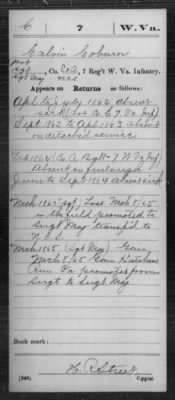 C 7 W.Va.
Calvin Coburn
Pvt
Sgt, Co. E&A, 7 Reg't W. Va. Infantry.
Sgt Maj N.C.S
Appears on Returns as follows:
1862 absent
sick (Co E 7 Va Inf)
Sept. 1862 to Apl 1863 Absent
on detached service
Feb 1864 (Co A 7 W Va Inf)
Absent on furlough
June to Sept 1864 absent sick
Mch 1865 Sgt, Loss Mch 8/65
in the field promoted to
Sergt Maj transf'd to
N.C.S.
Mch 1865 (Sgt Maj) Gain,
Mch 8/65 Camp Hatchers
Run Va promoted from
Sergt to Sergt Maj
Book mark:
Street
(546) Copyist.